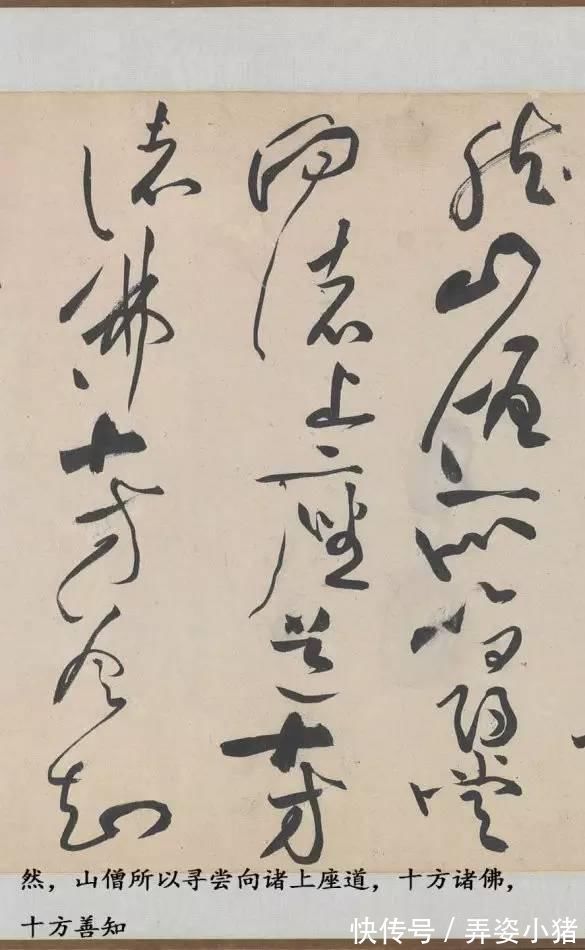 然山僧所以尋嘗
向諸上座道十方
諸佛十方善知
然，山僧所以寻尝向诸上座道，十方诸佛，
十方善知
快传号/弄姿小猪